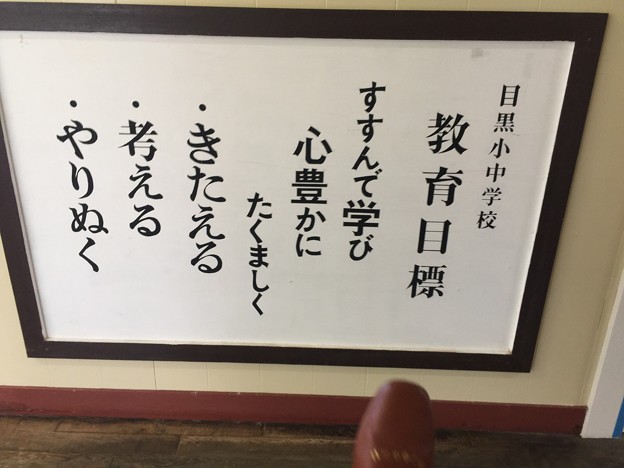 目黒小中学校
教育目標
すすんで学び
心豊かに
たくましく
・きたえる
・考える
・やりぬく